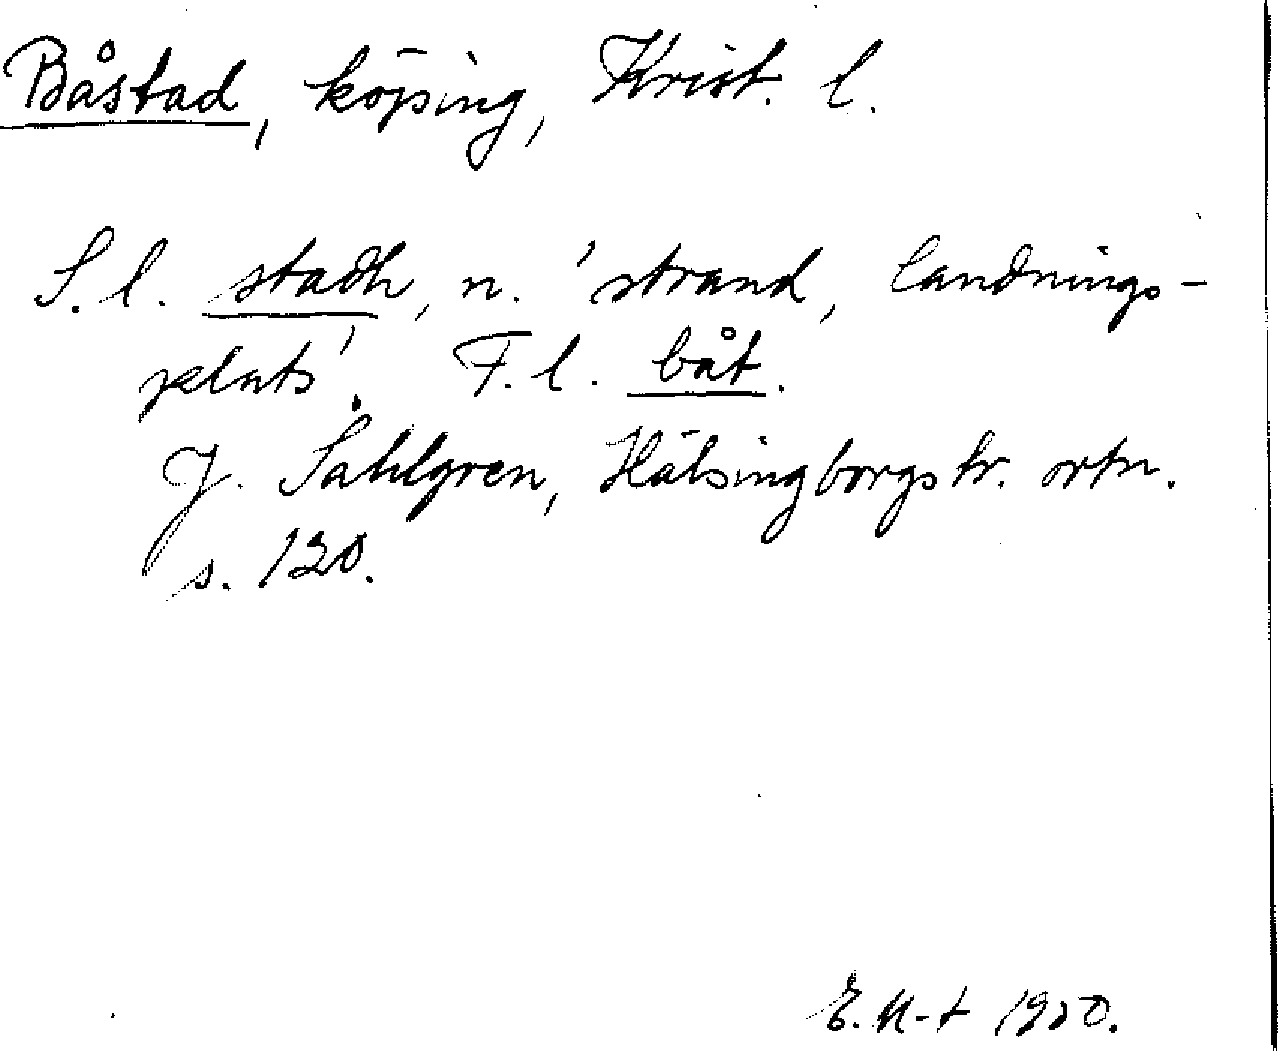 Båstad, köping, Krist. l.
S. l. stadh, n. 'strand, landnings-
plats'. F. l. båt.
J. Sahlgren, Hälsingborgstr. ortn.
s. 120.
E. N-t 1920.